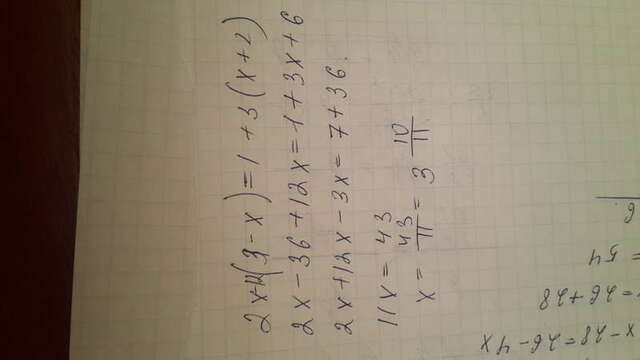 2x-12(3-x)=1+3(x+2)
2x-36+12x=1+3x+6
2x+12x-3x=7+36.
11x=43
x=43/11=3 10/11
x-28=26-4x
=26+28
=54